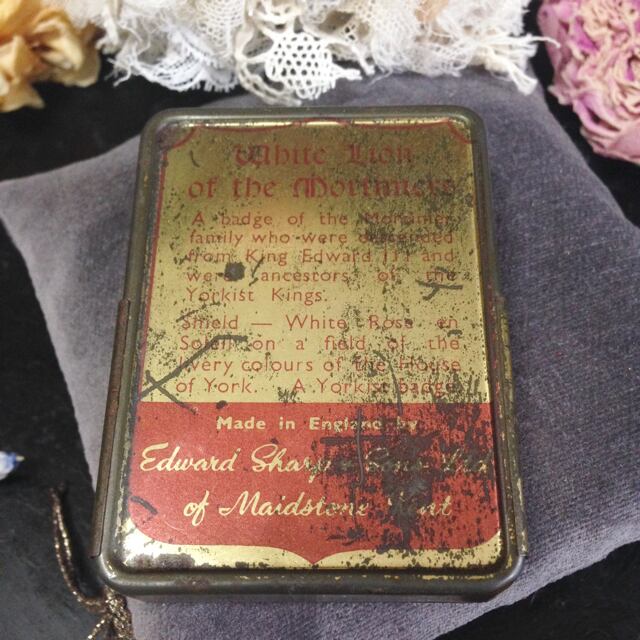 White Lion
of the Mortimers
A badge of the Mortimer
family who were descended
from King Edward III and
were ancestors of the
Yorkist Kings.
Shield — White Rose en
Soleil on a field of the
livery colours of the House
of York. A Yorkist badge.
Made in England by
Edward Sharp & Sons Ltd
of Maidstone Kent